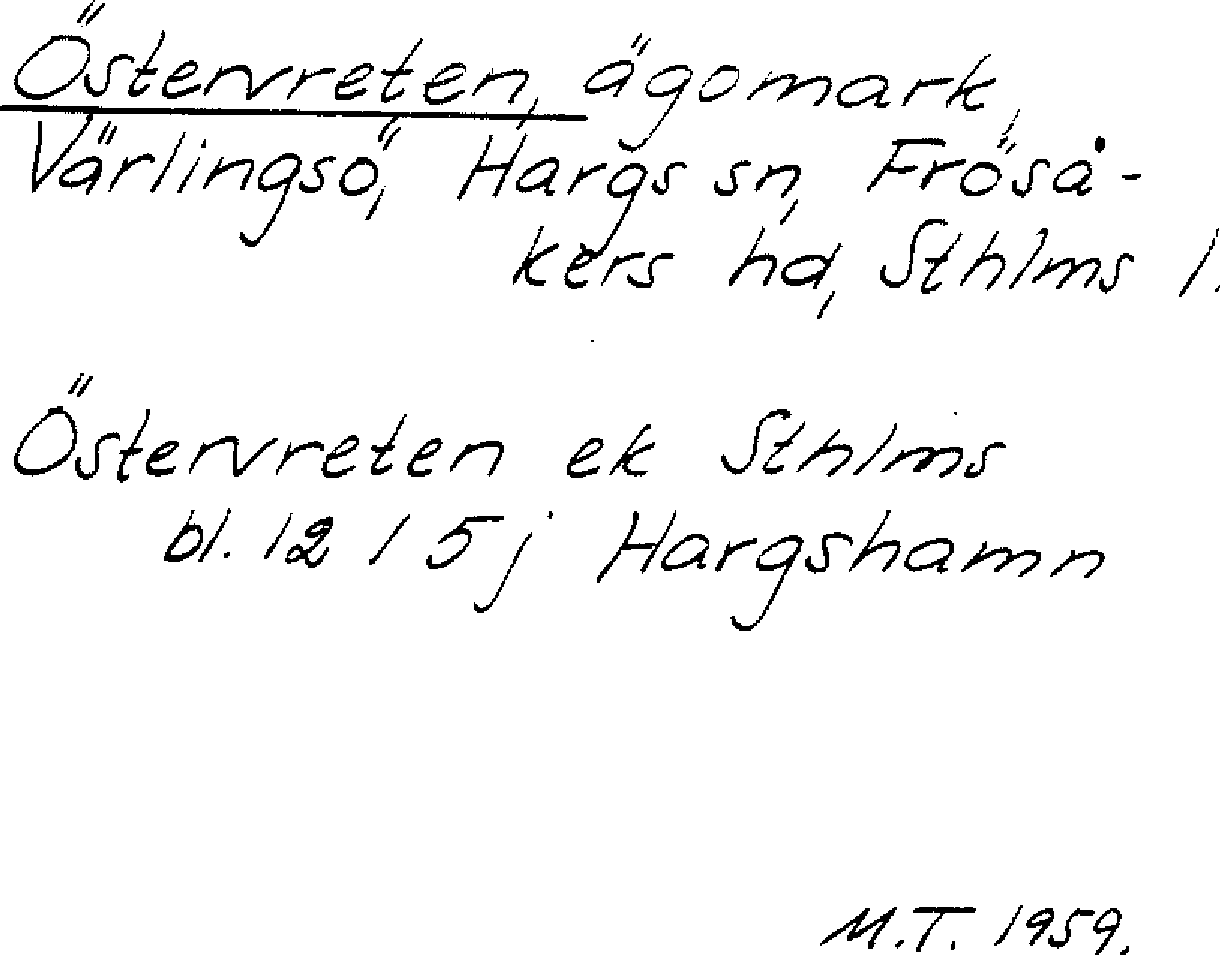 Östervreten, ägomark,
Värlingsö, Hargs sn, Fröså-
kers hd, Sthlms l.
Östervreten ek Sthlms
bl. 12 I 5j Hargshamn
M.T. 1959.